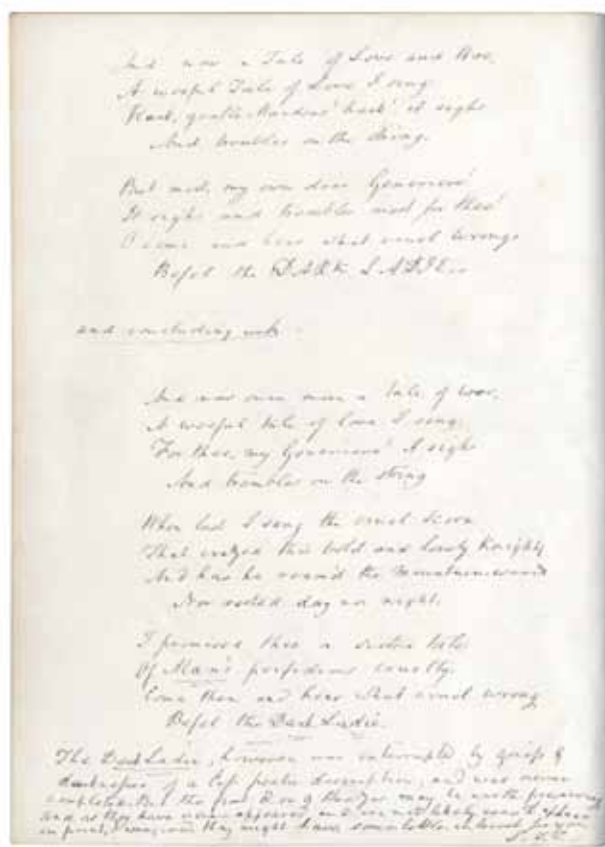 And now a Tale of Love and Woe,
A woeful Tale of Love I sing
Hark, gentle Maidens! hark! it sighs
And trembles on the string.
But most, my own dear Genevieve!
It sighs and trembles most for thee!
O come and hear what cruel wrongs
Befel the DARK LADIE.
and concluding with
And now once more a tale of woe,
A woeful tale of love I sing:
For thee, my Genevieve! it sighs
And trembles on the string
When last I sang the cruel scorn
That crazed this bold and lovely Knight,
And how he roam'd the mountain woods
Nor rested day or night,
I promised thee a sister tale
Of Man's perfidious cruelty.
Come then and hear what cruel wrong
Befel the Dark Ladie.
The Dark Ladie, however was interrupted by griefs &
of a less poetic description, and was never
completed. But the may be worth preserving
and as they have never appeared, and are not likely
in print, they might have some interest for you
S. T. C.